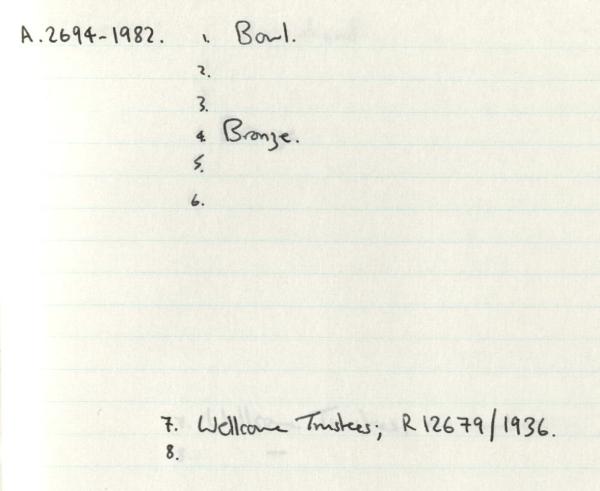 A.2694-1982. 1. Bowl.
2.
3.
4. Bronze.
5.
6.
7. Wellcome Trustees; R12679/1936.
8.